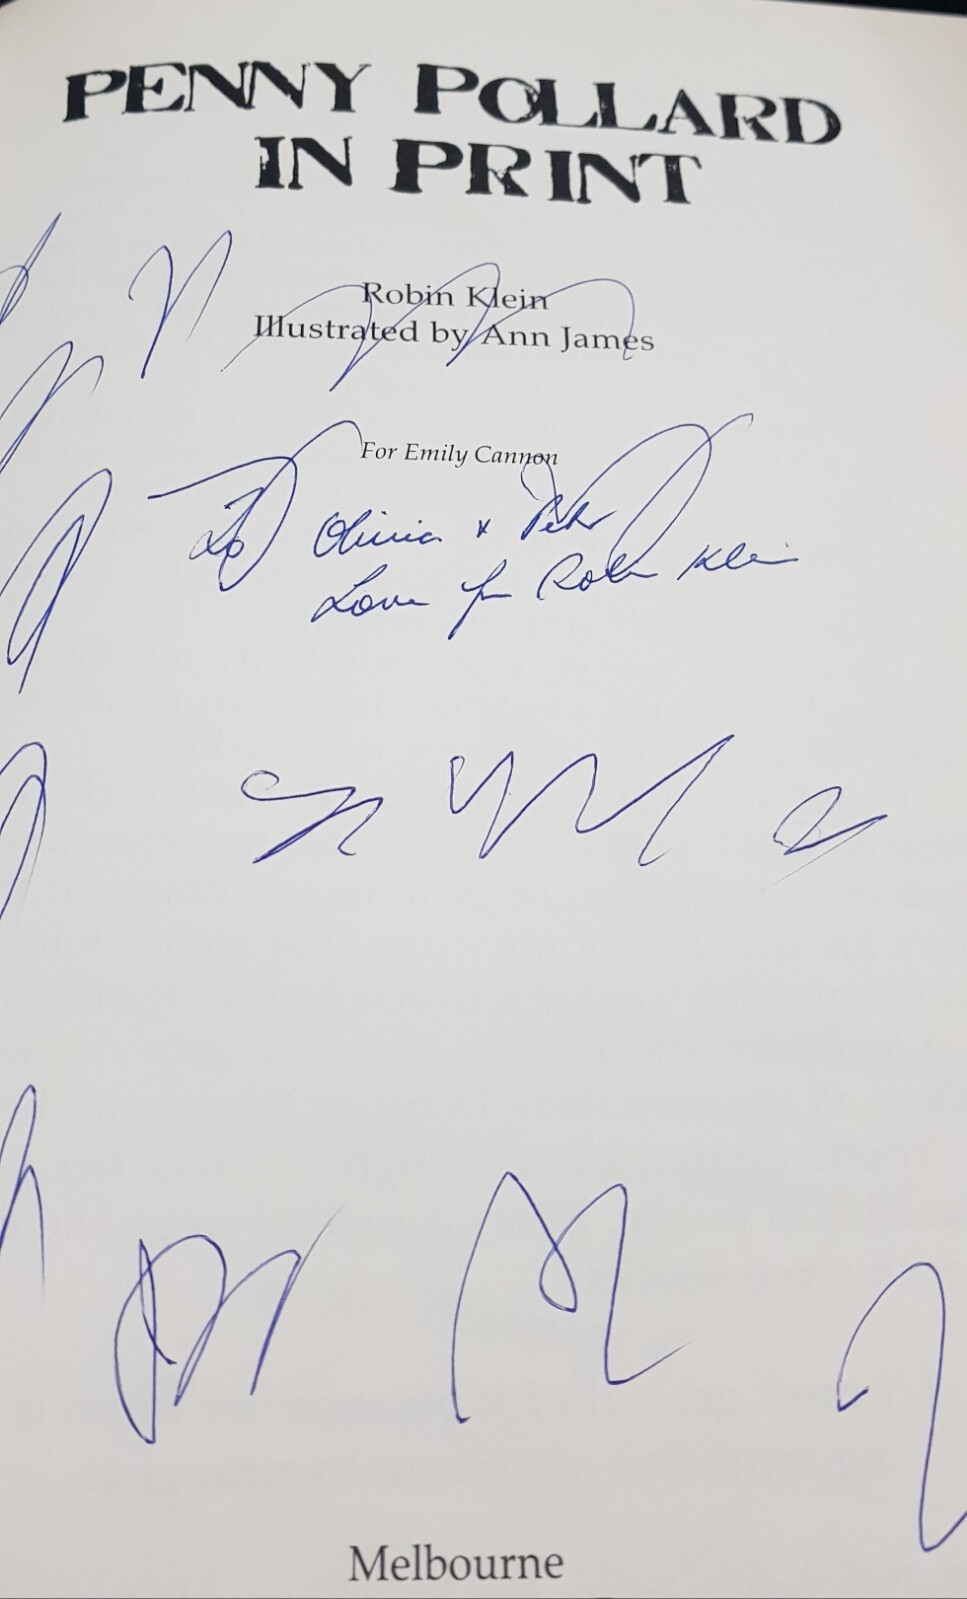 PENNY POLLARD
IN PRINT
Robin Klein
Illustrated by Ann James
For Emily Cannon
To Olivia & Peter
Love from Robin Klein
Melbourne